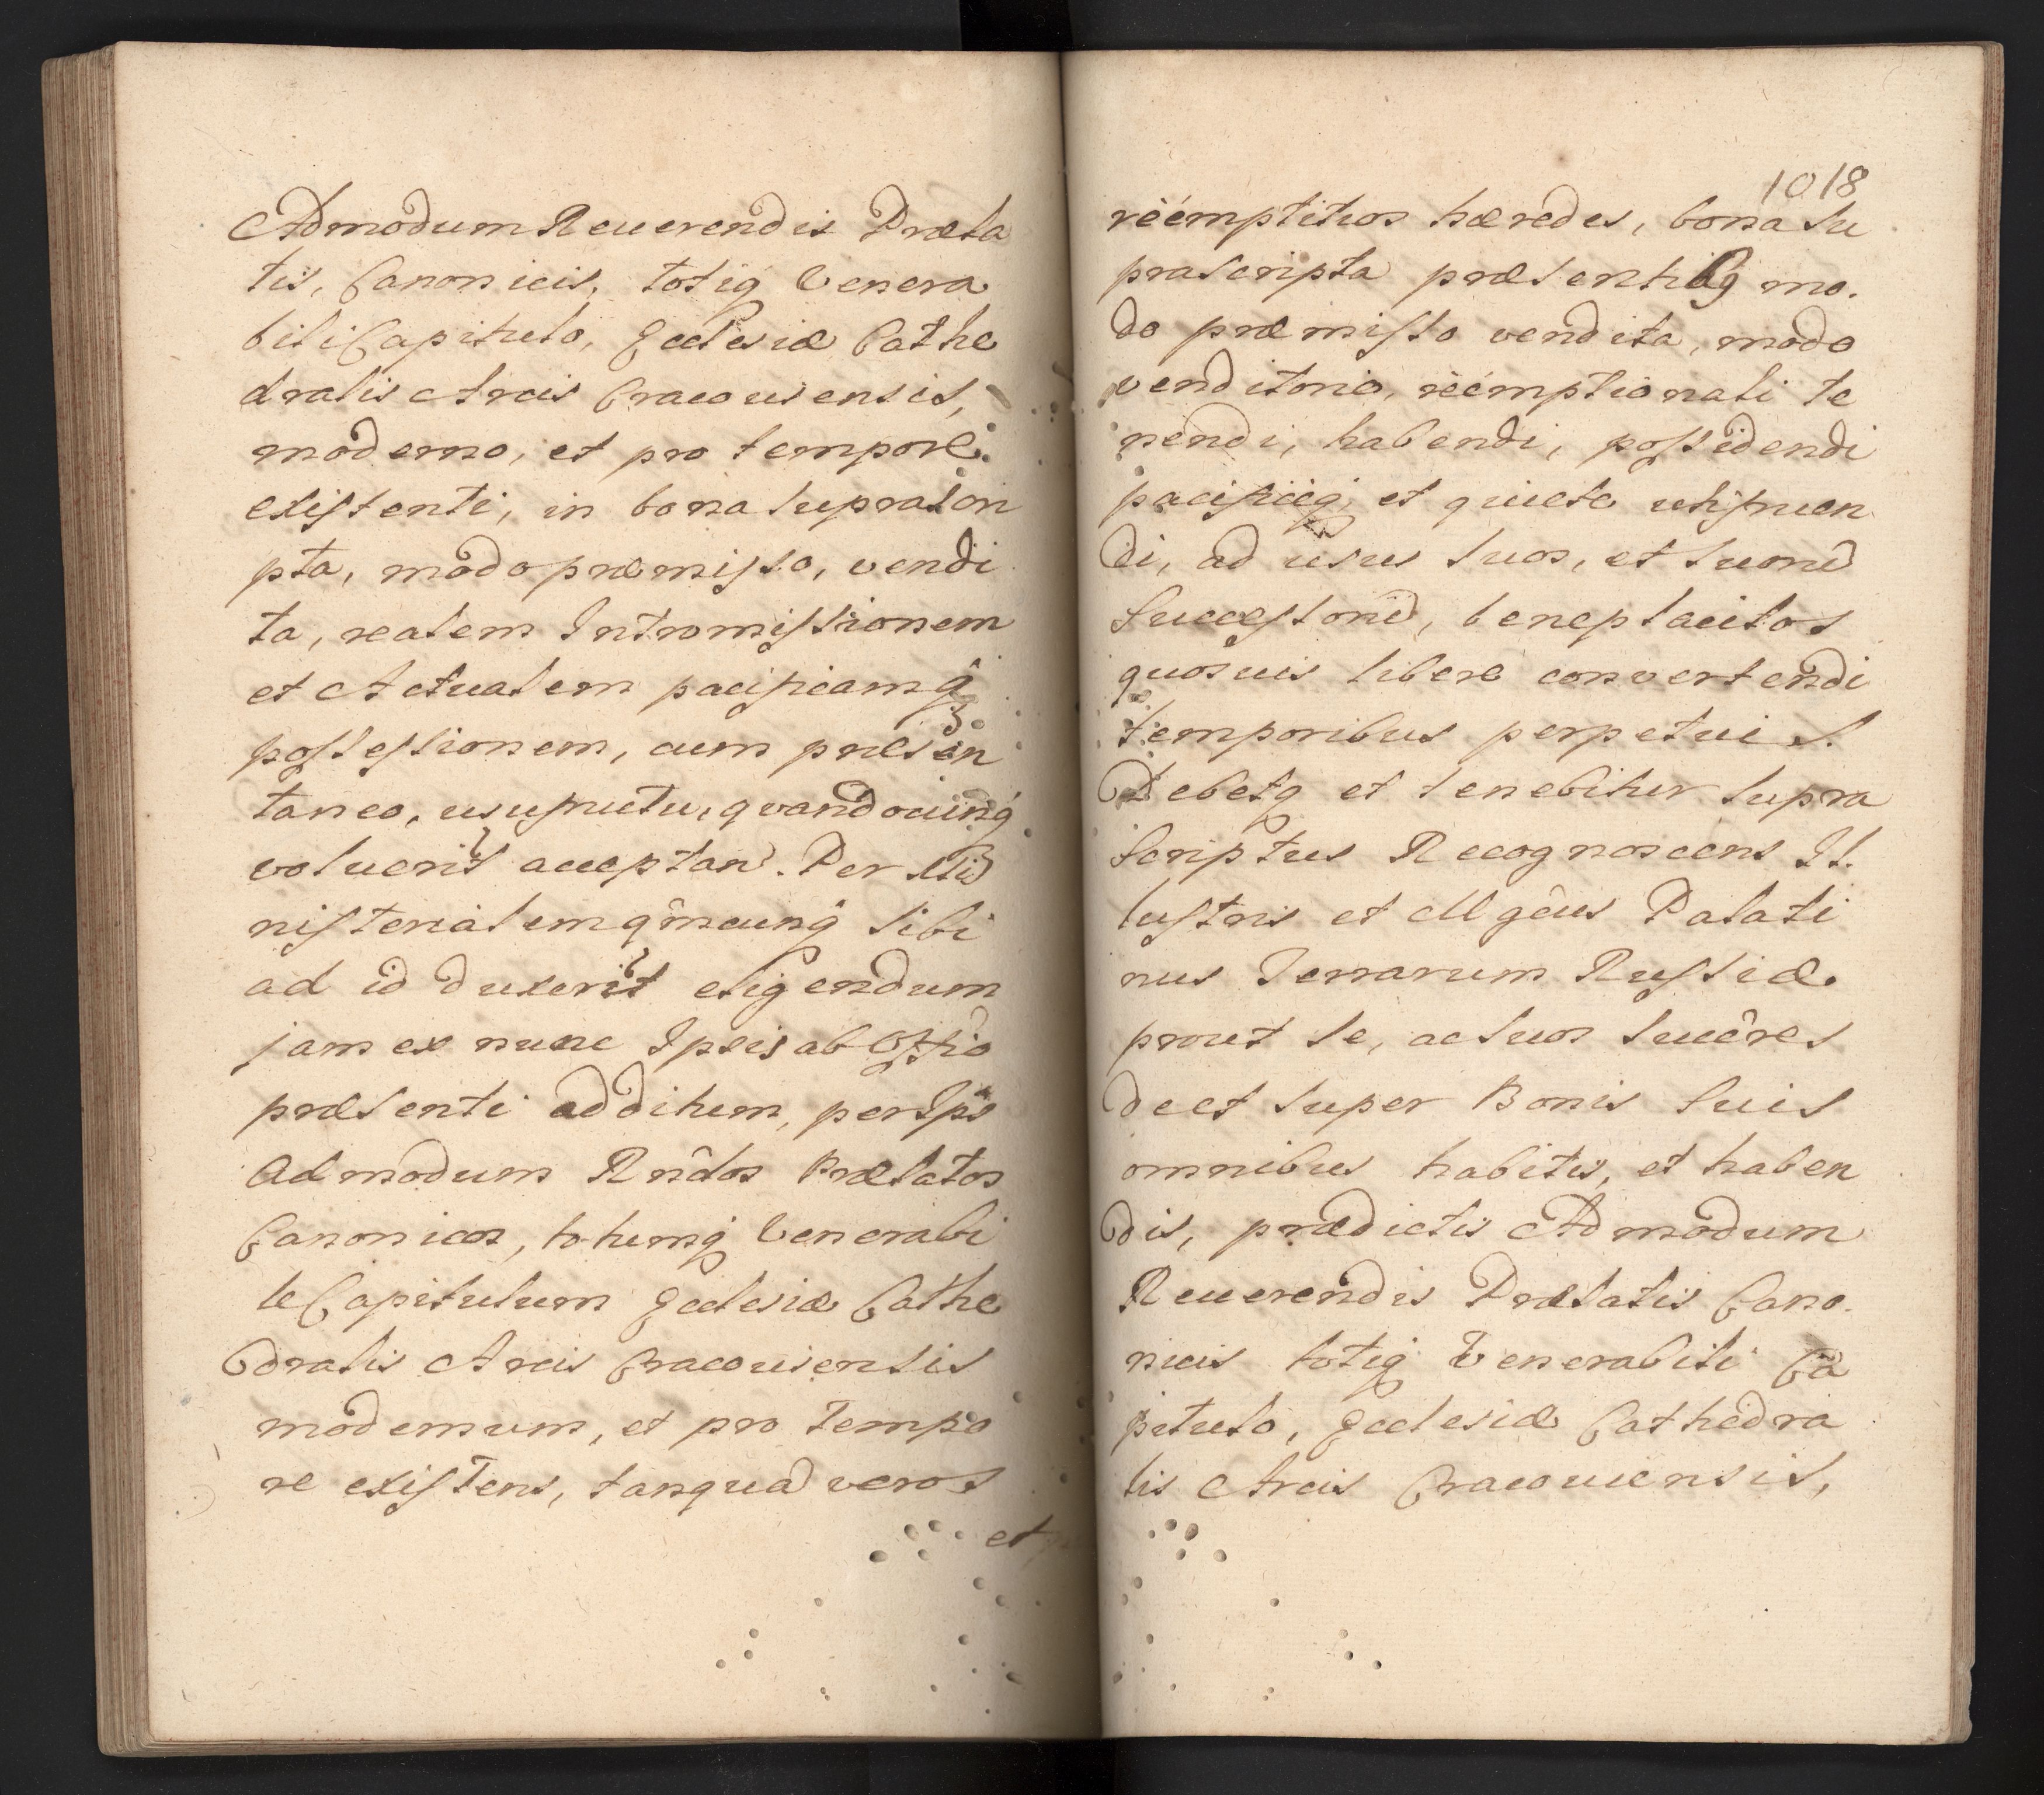 Admodum Reuerendis Præla
tis, Canonicis, totiq́ Venera
bili Capitulo, Ecclesiæ Cathe
dralis Arcis Cracouiensis,
moderno, et pro tempore
existenti, in bona suprascri
pta, modo præmisso, vendi
ta, realem Intromissionem
et Actualem pacificamq́
possessionem, cum præsen
taneo, usufructu, quandocunq́
voluerit acceptan. Per Mi
nisterialem qm̂cunq́ sibi
ad id duxerit eligendum
jam ex nunc Ipsis ab Offio
præsenti additum, per Ips
Admodum Rndos Prælatos
Canonicos, totumq́ Venerabi
le Capitulum Ecclesiæ Cathe
dralis Arcis Cracouiensis
modernum, et pro tempo
re existens, tanqua veros
et
1018
rëémptitios hæredes, bona su
prascripta præsentibq́ mo.
do præmisso vendita, modo
venditorio, rëémptionali te
nendi, habendi, possidendi
pacificeq́ et quiete utifruen
di, ad usus suos, et suoru
Successoru, beneplacitos
quosuis libere convertendi
temporibus perpetuis.
Debetq́ et tenebitur supra
Scriptus Recognoscens Il.
lustris et Mgcûs Palati
nus Terrarum Russiæ.
prout se, ac suos succêres
de et super Bonis suis
omnibus habitis, et haben
dis, prædictis Admodum
Reuerendis Prælatis Cano.
nicis totiq́ Venerabili Ca
pitulo, Ecclesiæ Cathedra
lis Arcis Cracouiensis,